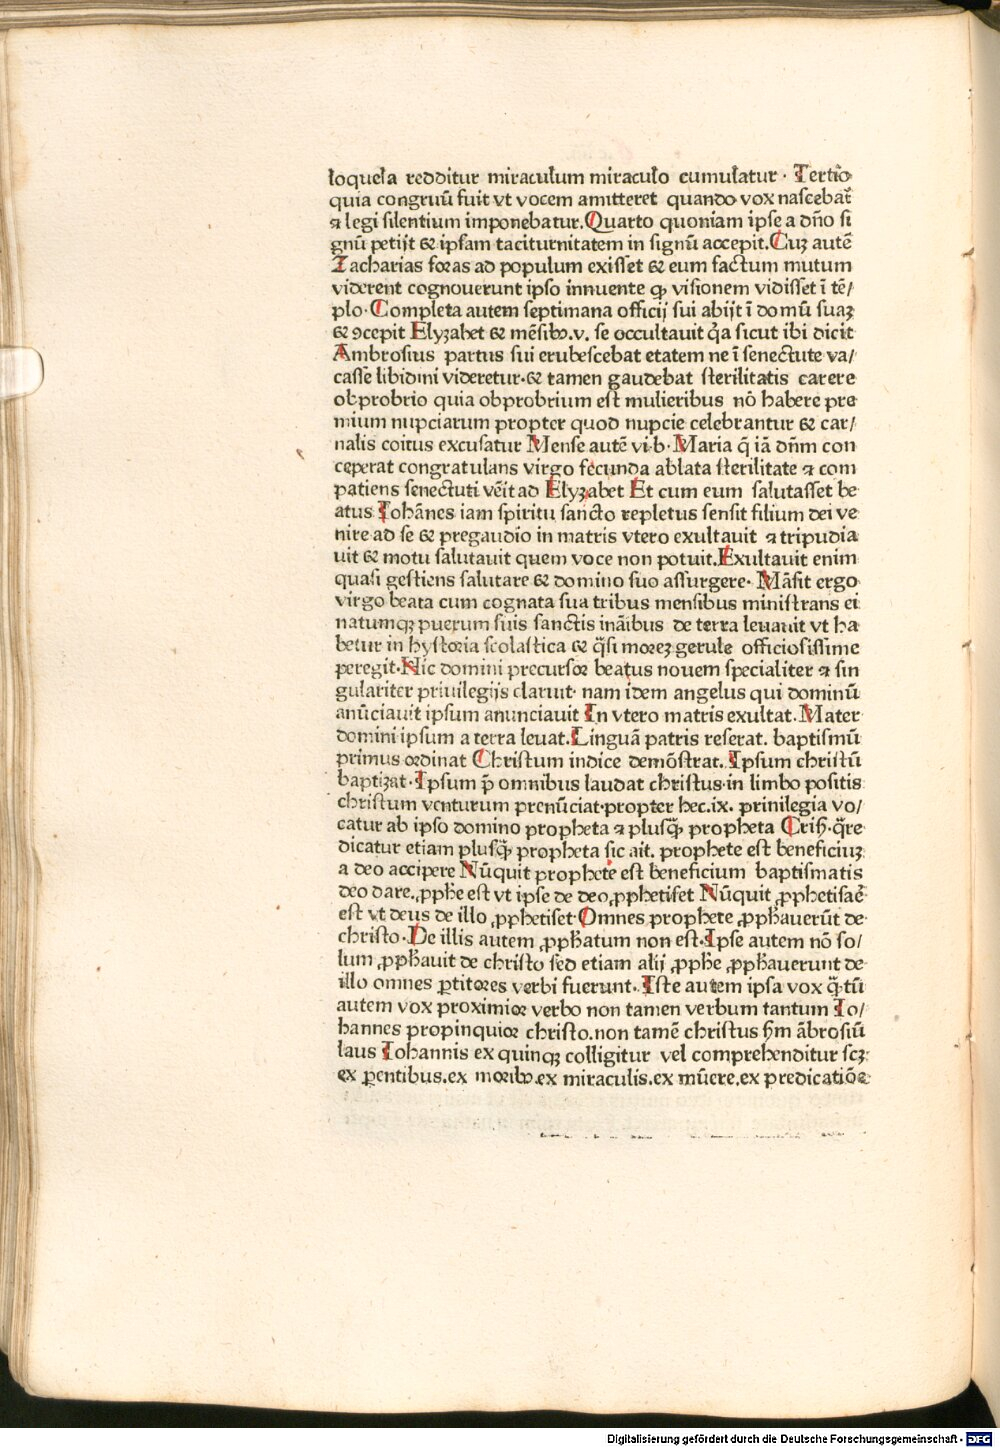 loquela redditur miraculum miraculo cumulatur · Tertio
quia congruū fuit vt vocem amitteret quando vox nascebat᷑
⁊ legi silentium imponebatur. Quarto quoniam ipse a dño si
gnū petijt & ipsam taciturnitatem in signū accepit. Cuꝫ autē
Zacharias foras ad populum exisset & eum factum mutum
viderent cognouerunt ipso innuente ꝙ visionem vidisset ī tē/
plo· Completa autem septimana officij sui abijt ī domū suaꝫ
& ꝯcepit Elyzabet & mēsibꝰ.v. se occultauit q̄a sicut ibi dicit
Ambrosius partus sui erubescebat etatem ne ī senectute va/
casse libidini videretur·& tamen gaudebat sterilitatis carere
obprobrio quia obprobrium est mulieribus nō habere pre
mium nupciarum propter quod nupcie celebrantur & car/
nalis coitus excusatur Mense autē vi·b· Maria q̄ iā dn̄m con
ceperat congratulans virgo fecunda ablata sterilitate ⁊ com
patiens senectuti vēit ad Elyzabet Et cum eum salutasset be
atus Iohānes iam spiritu sancto repletus sensit filium dei ve
nire ad se & pregaudio in matris vtero exultauit ⁊ tripudia
uit & motu salutauit quem voce non potuit. Exultauit enim
quasi gestiens salutare & domino suo assurgere· Māsit ergo
virgo beata cum cognata sua tribus mensibus ministrans ei
natumqꝫ puerum suis sanctis ināibus de terra leuauit vt ha
betur in hystoria scolastica & q̄si moreꝫ gerule officiosissime
peregit· Nic domini precursor beatus nouem specialiter ⁊ sin
gulariter priuilegijs claruit· nam idem angelus qui dominū
anūciauit ipsum anunciauit In vtero matris exultat. Mater
domini ipsum a terra leuat. Linguā patris reserat. baptismū
primus ordinat Christum indice demōstrat. Ipsum christū
baptizat· Ipsum p̄ omnibus laudat christus·in limbo positis
christum venturum prenūciat·propter hec.ix. prinilegia vo/
catur ab ipso domino propheta ⁊ plusq̄ꝫ propheta Crisꝭ·q̄re
dicatur etiam plusq̄ꝫ propheta sic ait. prophete est beneficiuꝫ
a deo accipere Nūquit prophete est beneficium baptismatis
deo dare. ꝓphe est vt ipse de deo ꝓphetiset Nūquit ꝓphetisaē
est vt deus de illo ꝓphetiset· Omnes prophete ꝓphauerūt de
christo· De illis autem ꝓphatum non est· Ipse autem nō so/
lum ꝓphauit de christo sed etiam alij ꝓphe ꝓphauerunt de
illo omnes ꝑtitores verbi fuerunt· Iste autem ipsa vox q̄tū
autem vox proximior verbo non tamen verbum tantum Io/
hannes propinquior christo.non tamē christus ẜm ābrosiū
laus Iohannis ex quinqꝫ colligitur vel comprehenditur scꝫ
ex ꝑentibus.ex moribꝰ.ex miraculis.ex mūere.ex predicatiōe